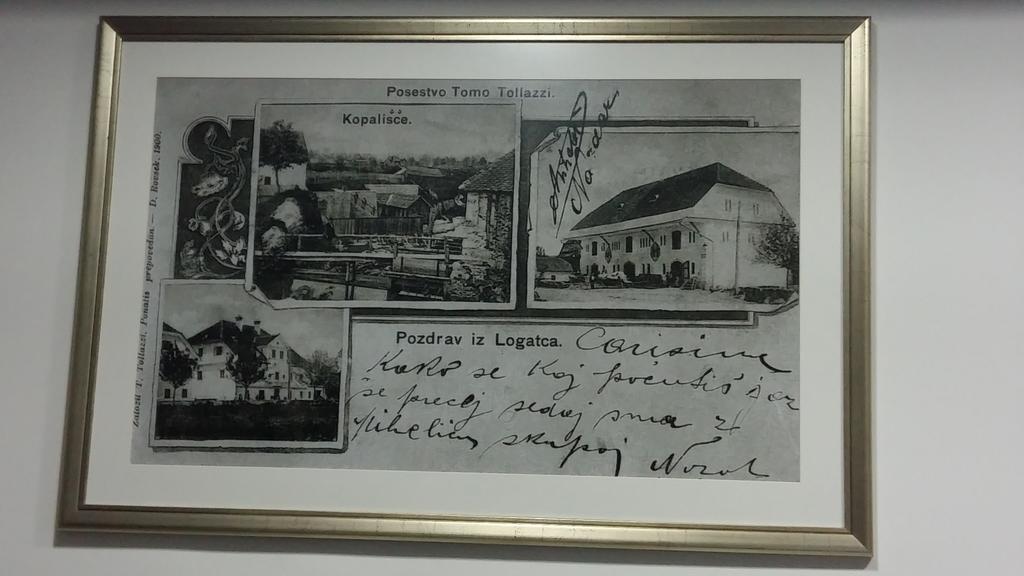 Posestvo Tomo Tollazzi.
Kopališče.
Založil T. Tollazzi. Ponatis prepovedan — D. Rovšek. 1900.
Pozdrav iz Logatca. Carissima
Kako se Koj počutiš jaz
še precej sedaj sma z
skupaj